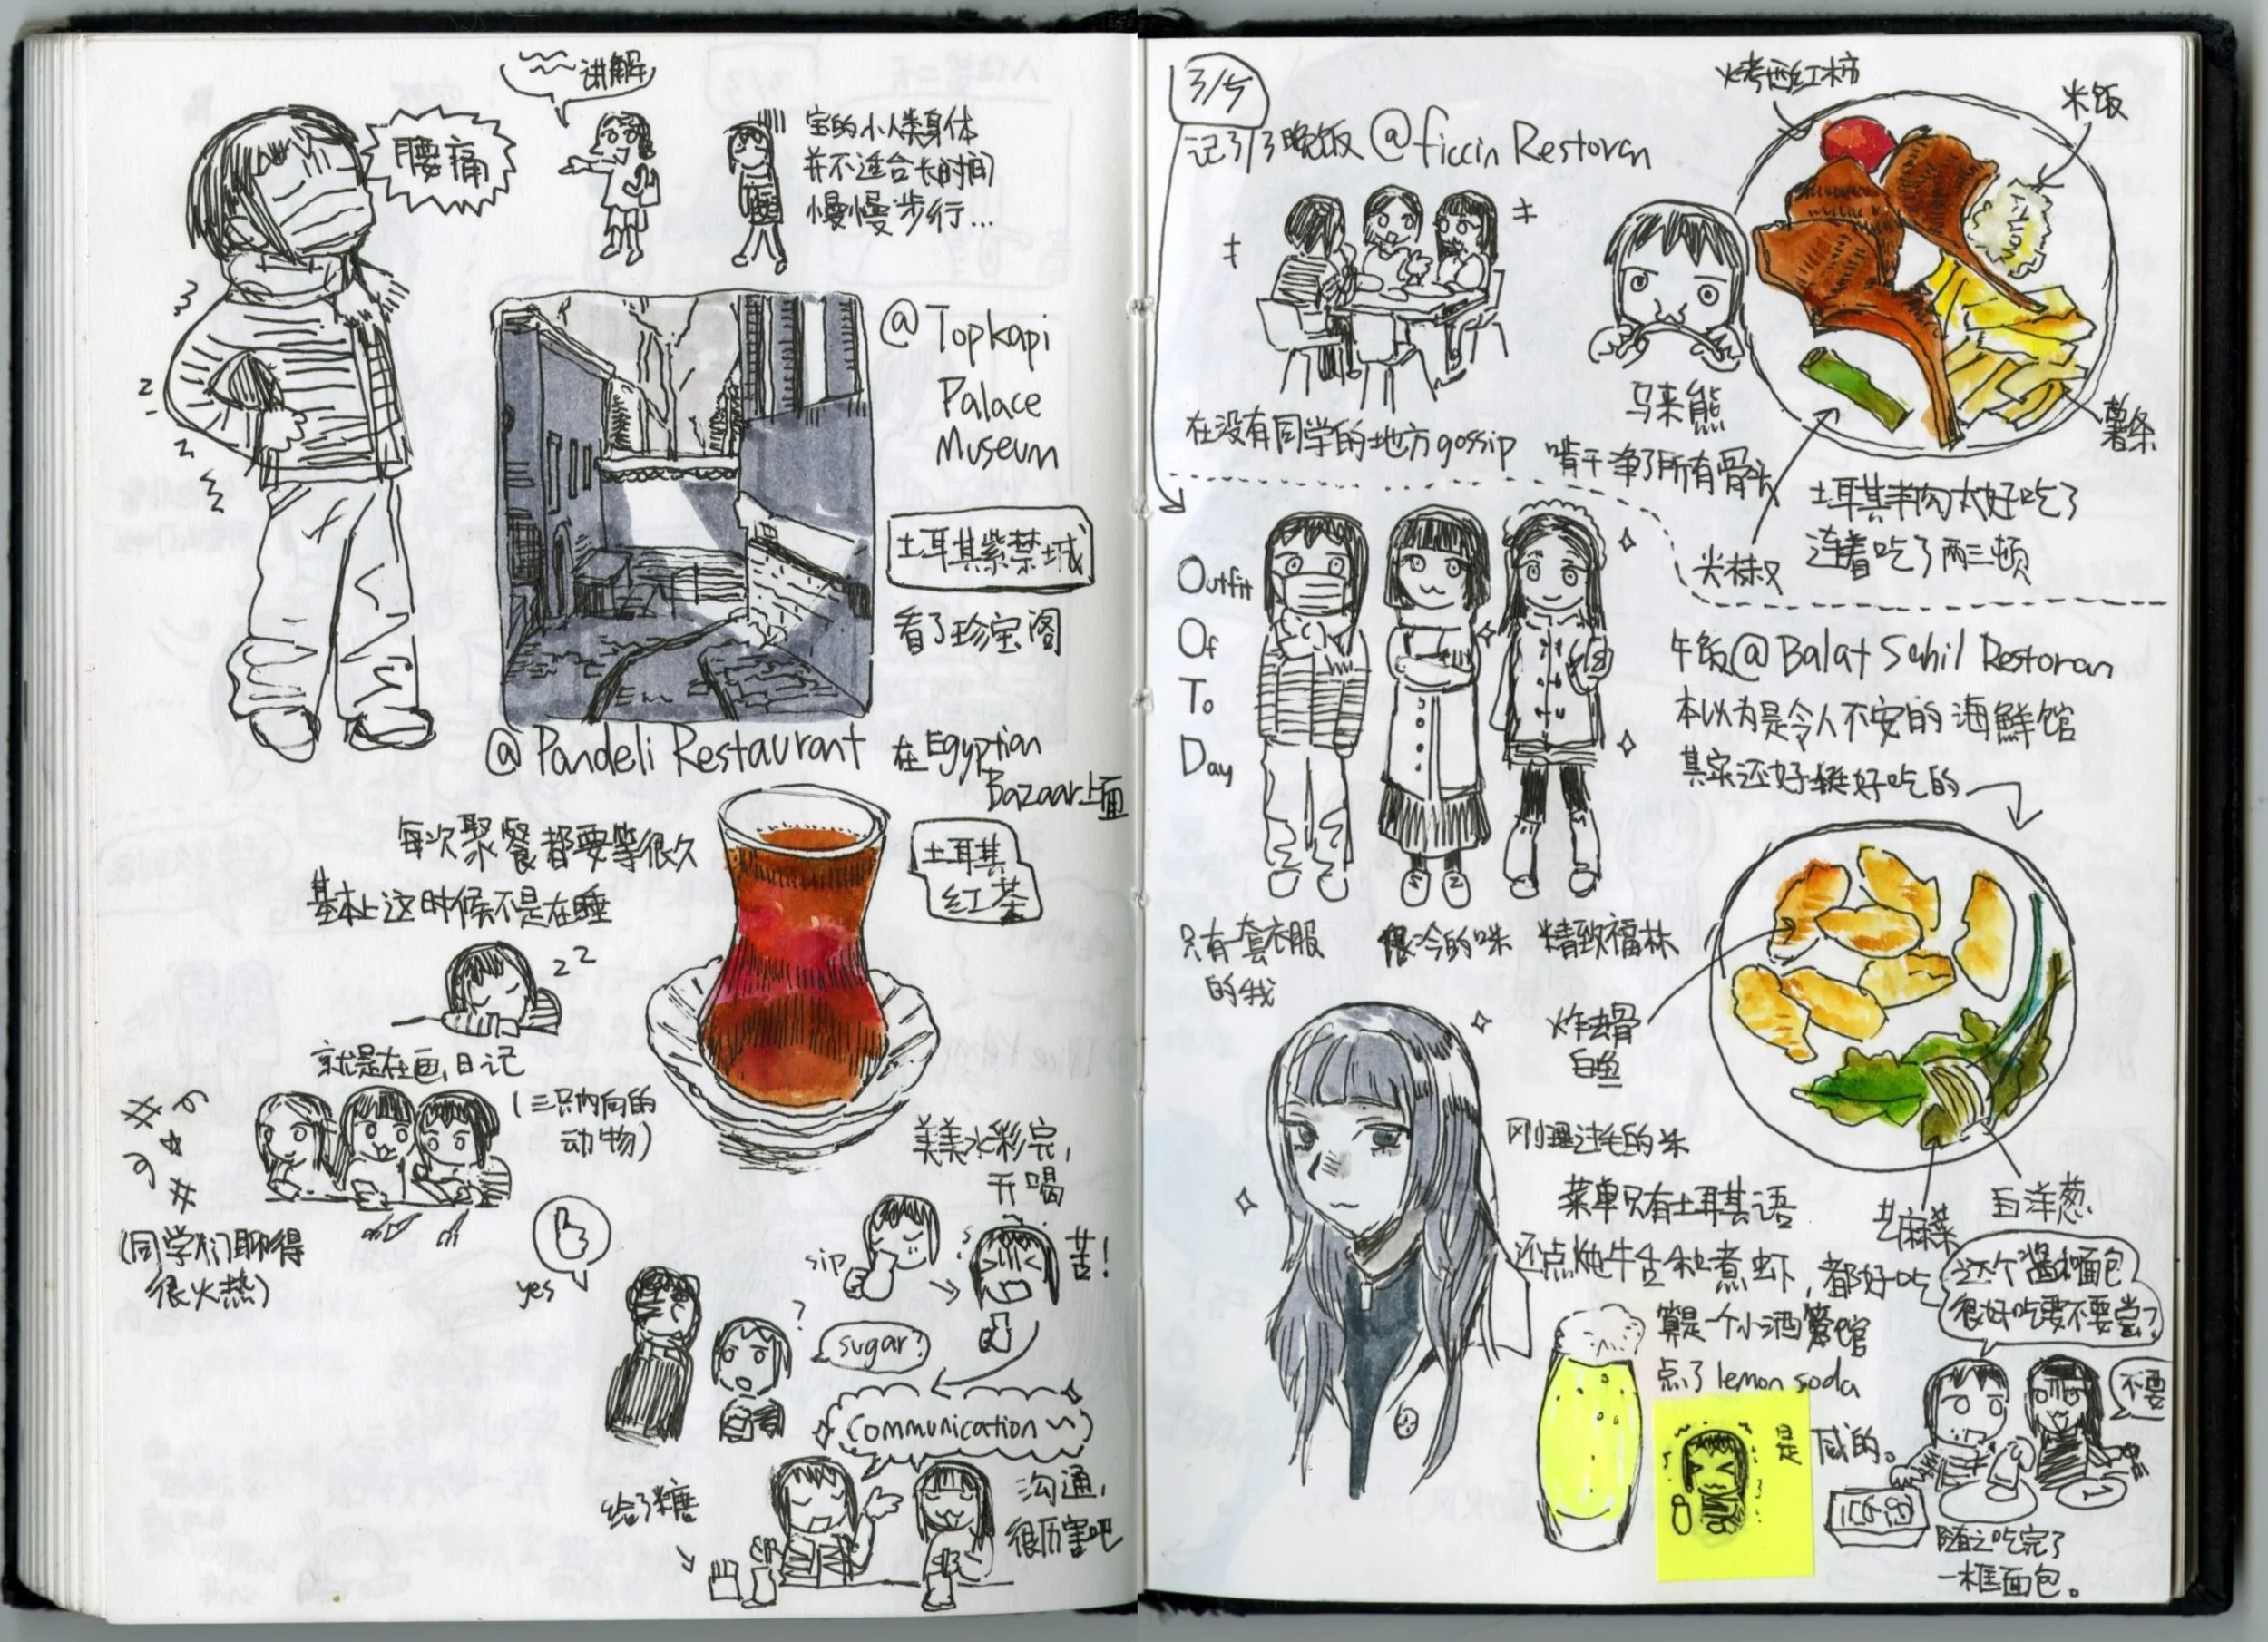 讲解
腰痛
宝的小人类身体
并不适合长时间
慢慢步行...
@ Topkapi
Palace
Museum
土耳其紫禁城
看了珍宝阁
@ Pandeli Restaurant 在Egyptian
Bazaar上面
每次聚餐都要等很久
基本上这时候不是在睡
zz
土耳其
红茶
就是在画日记
(三只内向的
动物)
(同学们聊得
很火热)
美美水彩完,
开喝
sip
苦!
yes
?
sugar?
communication~
给了糖
沟通,
很厉害吧
3/5
记3/3晚饭 @ficcin Restoran
在没有同学的地方gossip
马来熊
啃干净了所有骨头
烤西红柿
米饭
薯条
尖椒
土耳其羊肉太好吃了
连着吃了两三顿
Outfit
Of
To
Day
只有一套衣服
的我
很冷的咪
精致福林
午饭@Balat Sahil Restoran
本以为是令人不安的海鲜馆
其实还好挺好吃的
炸去骨
白鱼
刚理过毛的米
芝麻菜
白洋葱
菜单只有土耳其语
还点炖牛舌和煮虾,都好吃
算是个小酒馆
点了lemon soda
是咸的。
这个酱和面包
很好吃要不要尝?
不要
随之吃完了
一框面包。